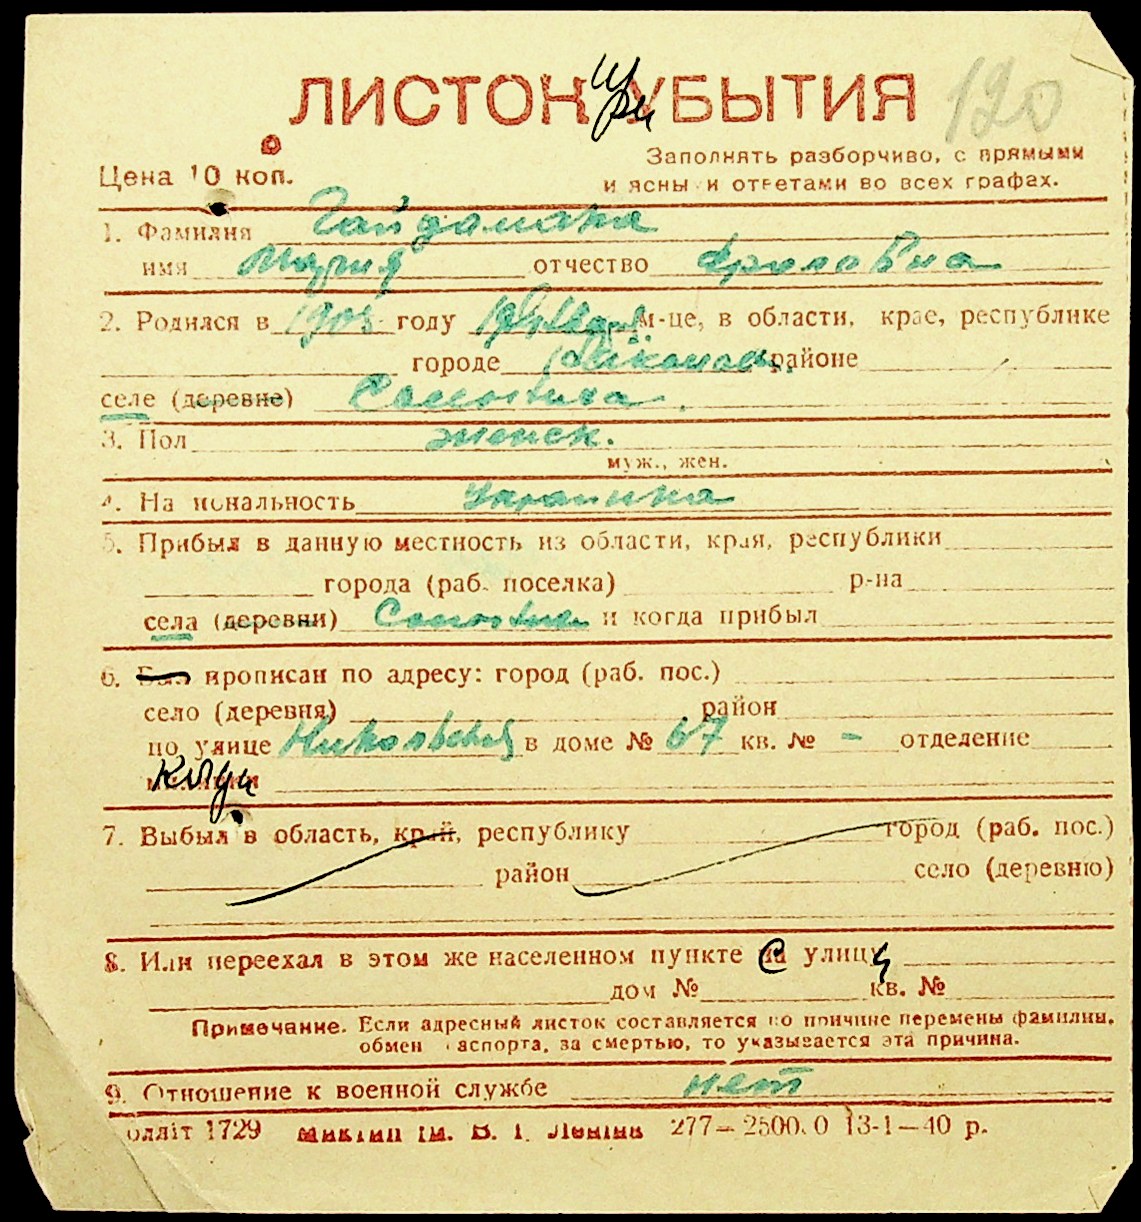 ЛИСТОК УБЫТИЯ
При
120
Цена 10 коп.
Заполнять разборчиво, с прямыми
и ясными ответами во всех графах.
1. Фамилия Гайдамака
имя Мария отчество Фроловна
2. Родился в 1908 году м-це, в области, крае, республике
городе районе
селе (деревне)
3. Пол женск.
муж., жен.
4. Национальность Украинка
5. Прибыл в данную местность из области, края, республики
города (раб. поселка) р-на
села (деревни) и когда прибыл
6. Был прописан по адресу: город (раб. пос.)
село (деревня) район
по улице Никольской в доме № 67 кв. № - отделение
милиции
Куда
7. Выбыл в область, край, республику город (раб. пос.)
район село (деревню)
8. Или переехал в этом же населенном пункте с улицы
дом № кв. №
Примечание. Если адресный листок составляется по причине перемены фамилии,
обмен паспорта, за смертью, то указывается эта причина.
9. Отношение к военной службе нет
олліт 1729 ім. В. І. Леніна 277—2500.0 13-1—40 р.